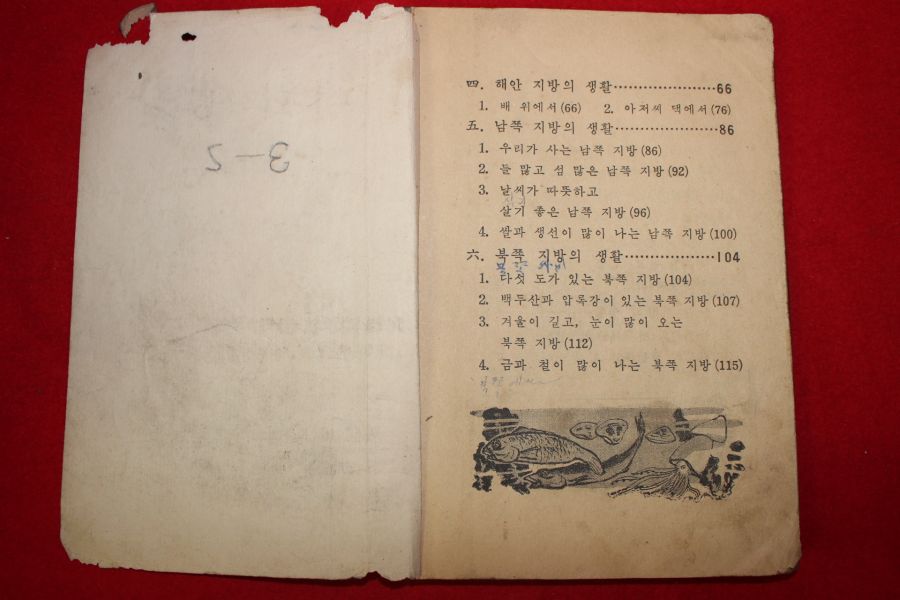 3-2
四. 해안 지방의 생활····················66
1. 배 위에서(66) 2. 아저씨 댁에서(76)
五. 남쪽 지방의 생활····················86
1. 우리가 사는 남쪽 지방(86)
2. 들 많고 섬 많은 남쪽 지방(92)
3. 날씨가 따뜻하고
살기 좋은 남쪽 지방(96)
4. 쌀과 생선이 많이 나는 남쪽 지방(100)
六. 북쪽 지방의 생활··················104
1. 다섯 도가 있는 북쪽 지방(104)
2. 백두산과 압록강이 있는 북쪽 지방(107)
3. 겨울이 길고, 눈이 많이 오는
북쪽 지방(112)
4. 금과 철이 많이 나는 북쪽 지방(115)